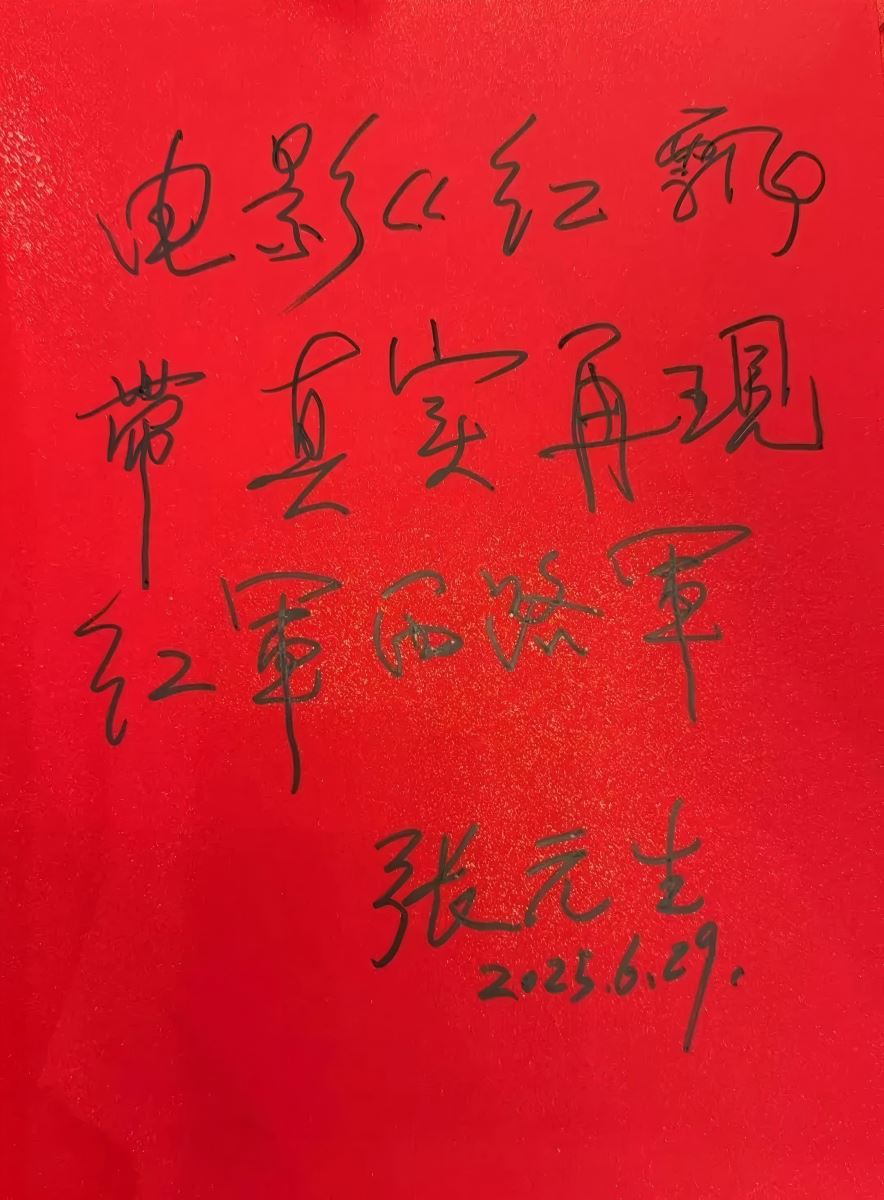 电影《红飘
带真实再現
红軍西路軍
张元生
2025.6.29.